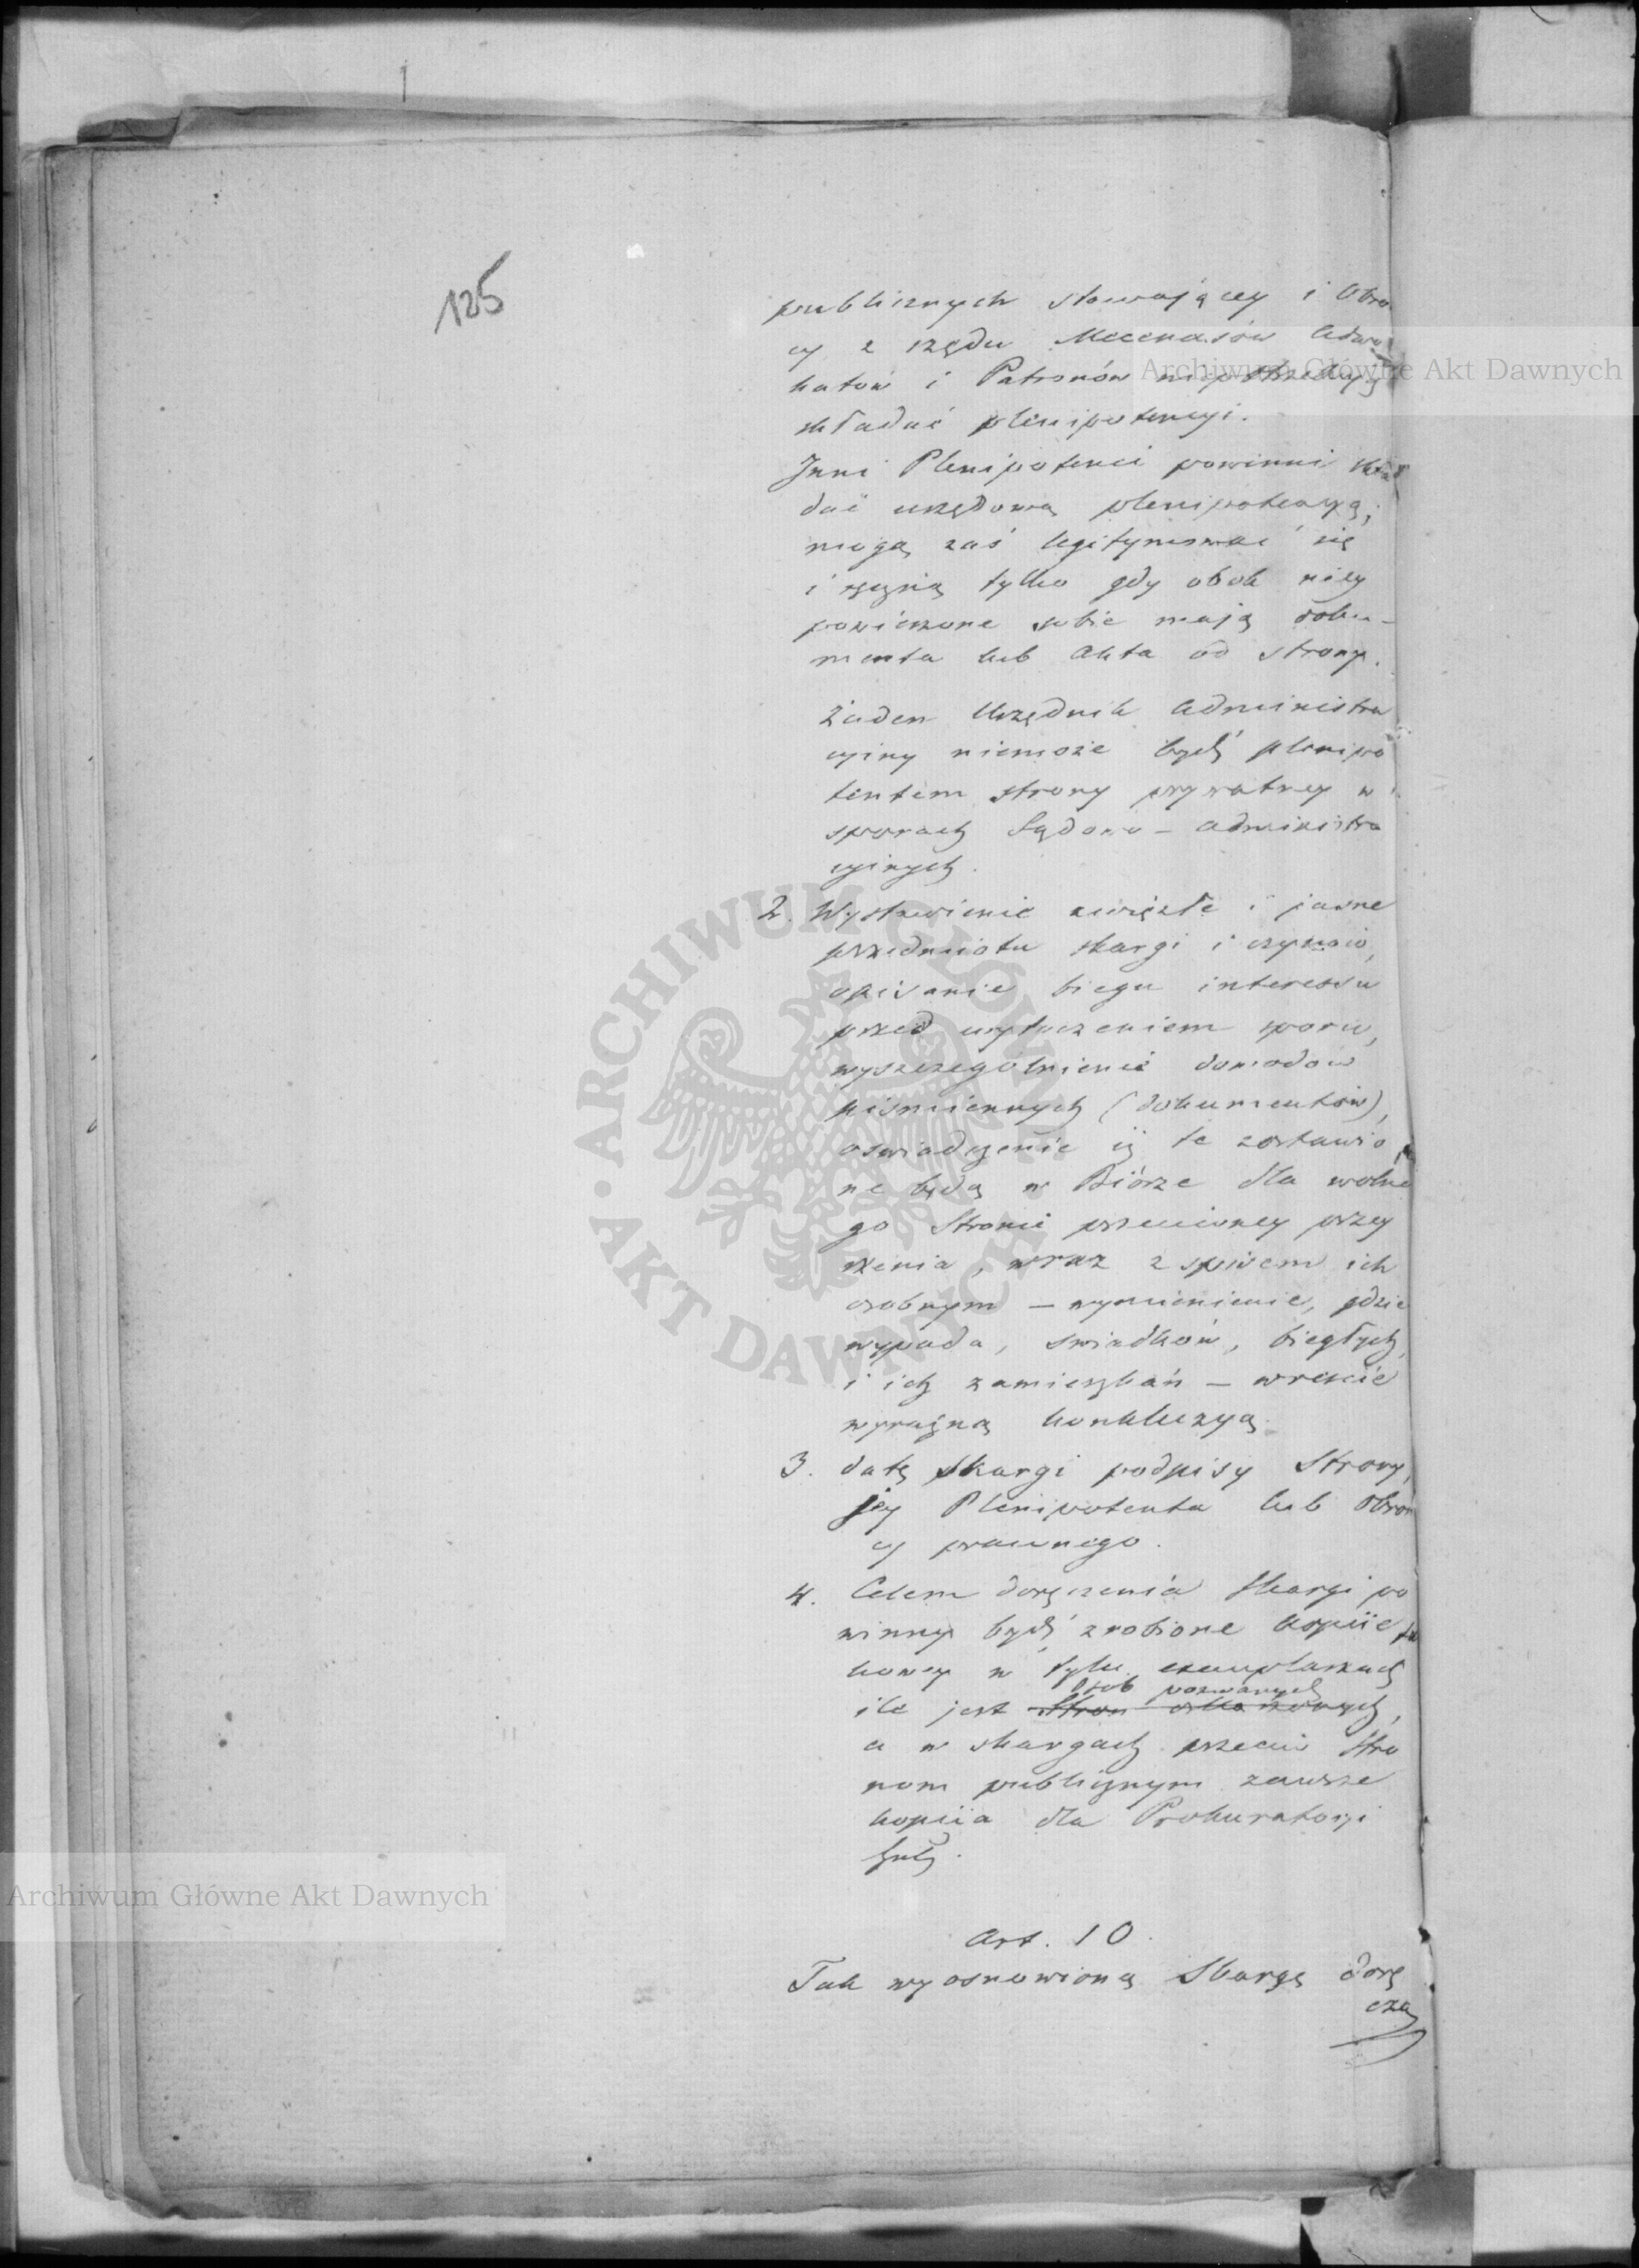 125
publicznych stawający i Obroń
cy z rzędu Mecenasów Adwo
katów i Patronów niepotrzebują
składać plenipotencyi.
Inni Plenipotenci powinni skła
dać urzędową plenipotencyą;
mogą zaś legitymować się
i ręczną tylko gdy obok niey
powierzone sobie mają doku-
menta lub Akta od strony.
Żaden Urzędnik Administra
cyiny niemoże bydź plenipo
tentem strony prywatney w
sporach Sądowo - Administra
cyinych.
2. Wystawienie zwięzłe i jasne
przedmiotu skargi i czynów,
opisanie biegu interessu
przed wytoczeniem sporu,
wyszczególnienie dowodów
piśmiennych (dokumentów),
oświadczenie iż te zostawio
ne będą w Biórze dla wolne
go Stronie przeciwney przey
rzenia, wraz z spisem ich
osobnym – wymienienie, gdzie
wypada, świadków, biegłych,
i ich zamieszkań – wreście
wyraźną konkluzyą.
3. datę skargi podpisy Strony,
jey Plenipotenta lub Obroń
cy prawnego.
4. Celem doręczenia skargi po
winny bydź zrobione kopiie
kowey w tylu exemplarzach
osób pozwanych
ile jest Stron oskarżonych,
a w skargach przeciw Stro
nom publicznym zawsze
kopiia dla Prokuratoryi
Art. 10.
Tak wyosnowioną Skargę dorę
cza
Archiwum Główne Akt Dawnych
Archiwum Główne Akt Dawnych
ARCHIWUM GŁÓWNE • AKT DAWNYCH •